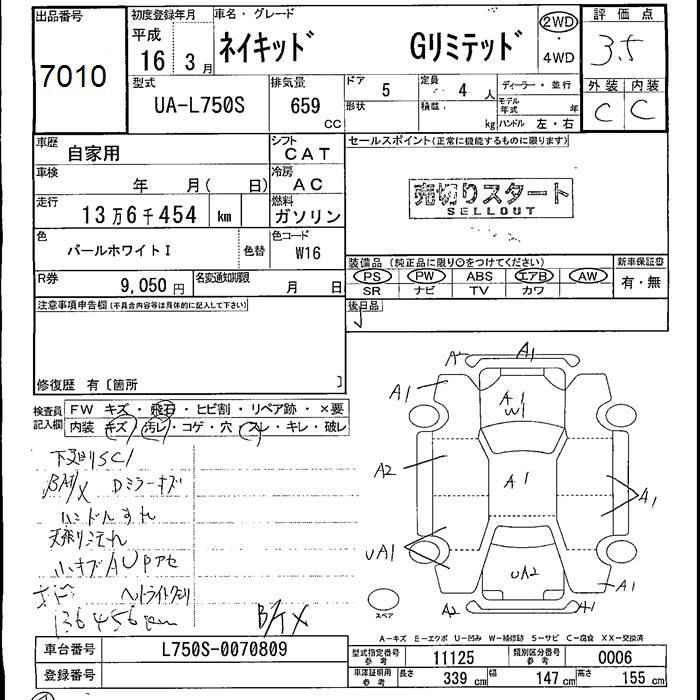 出品番号
7010
初度登録年月
平成
16 3月
車名・グレード
ネイキッド Gリミテッド
2WD
・
4WD
評価点
3.5
型式
UA-L750S
排気量
659
CC
ドア
5
定員
4人
形状
積載
kg
ディーラー・並行
モデル年式 年
ハンドル 左・右
外装 内装
C C
車歴
自家用
シフト
CAT
車検
年 月( 日)
冷房
AC
走行
13万6千454 km
燃料
ガソリン
色
パールホワイトI
色替
色コード
W16
R券
9,050円
名変通知期限
月 日
セールスポイント(正常に機能するものに限ります)
売切りスタート
SELLOUT
装備品(純正品に限り○をつけてください)
新車保証書
PS PW ABS エアB AW
有・無
SR ナビ TV カワ
後日品
注意事項申告欄(不具合内容等は具体的に記入して下さい)
修復歴 有〔箇所 〕
検査員
記入欄
FW キズ・飛石・ヒビ割・リペア跡・×要
内装 キズ・汚レ・コゲ・穴・スレ・キレ・破レ
下廻りSC1
Dミラーキズ
ハンドルすれ
天張り汚れ
小キズAUPアセ
ヘッドライトクモリ
136456km
A2 A1
A1
A1
W1
A2
A1
A1
UA1
UA2
A1
スペア
A2 A1
A-キズ E-エクボ U-凹み W-補修跡 S-サビ C-腐食 XX-交換済
車台番号
L750S-0070809
登録番号
型式指定番号
参考
11125
類別区分番号
参考
0006
車庫証明用
参考
長さ
339cm
幅
147cm
高さ
155cm